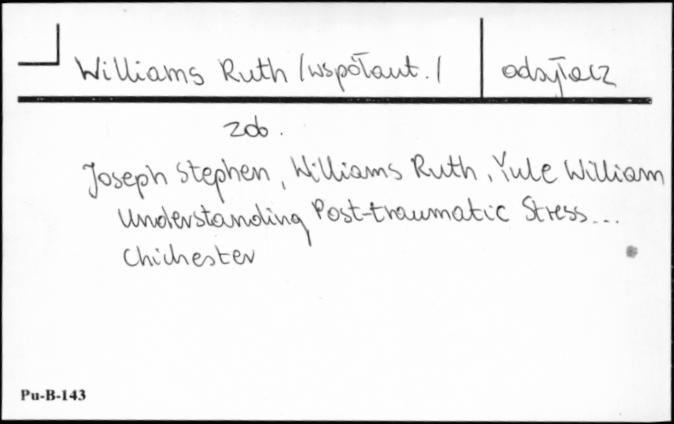 Williams Ruth /współaut./
odsyłacz
zob.
Joseph Stephen, Williams Ruth, Yule William
Understanding Post-traumatic Stress...
Chichester
Pu-B-143